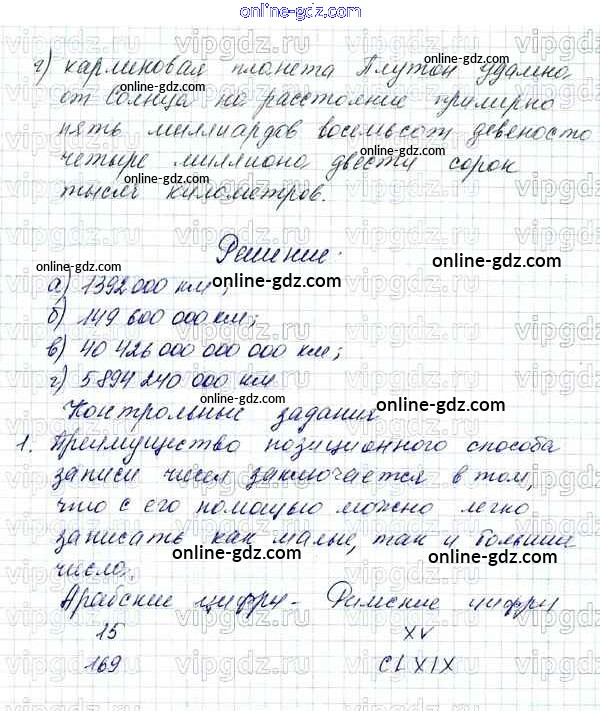 online-gdz.com
г) карликовая планета Плутон удалена
от Солнца на расстояние примерно
пять миллиардов восемьсот девяносто
четыре миллиона двести сорок
тысяч километров.
Решение.
а) 1392 000 км;
б) 149 600 000 км;
в) 40 426 000 000 000 км;
г) 5 894 240 000 км
Контрольные задания
1. Преимущество позиционного способа
записи чисел заключается в том,
что с его помощью можно легко
записать как малые, так и большие
числа.
Арабские цифры - Римские цифры
15 XV
169 CLXIX